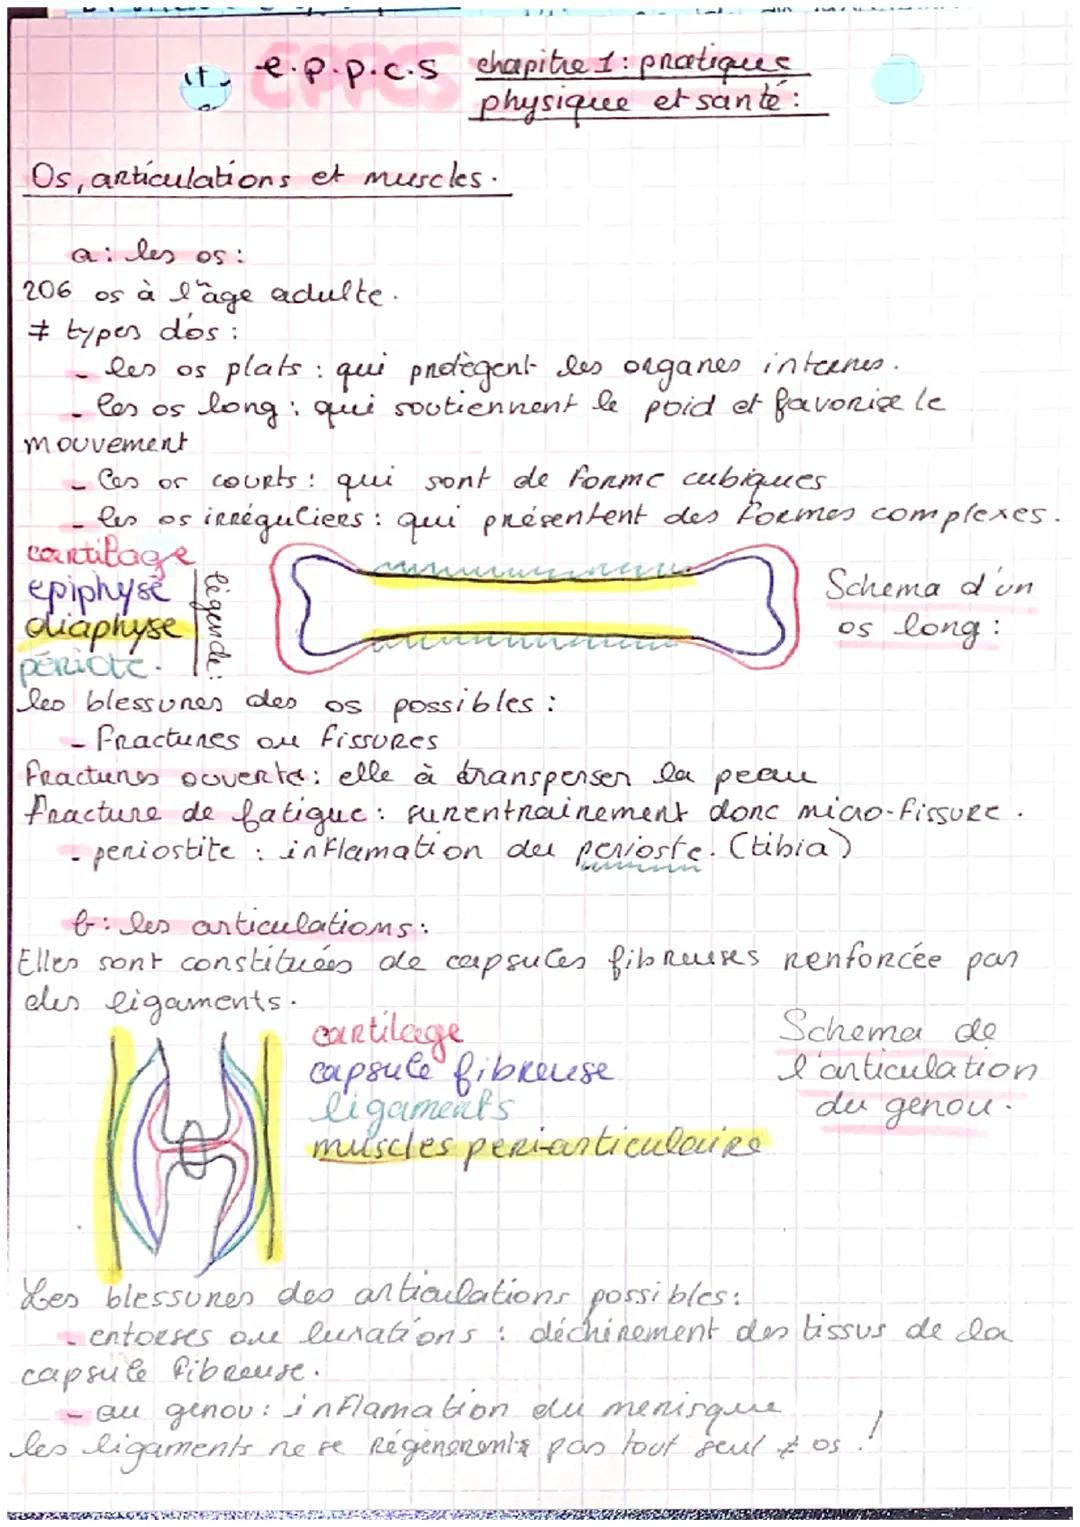 e.p.p.c.s chapitre 1: pratiques
physique et santé :
Os, articulations et muscles.
a: les os :
206 os à l'âge adulte.
≠ types d'os :
- les os plats : qui protègent les organes internes.
- les os long : qui soutiennent le poid et favorise le
mouvement
- les os courts : qui sont de forme cubiques
- les os irréguliers : qui présentent des formes complexes.
cartilage
epiphyse
diaphyse
périote.
légende :
Schema d'un
os long :
les blessures des os possibles :
- fractures ou fissures
fractures ouverte : elle à transpenser la peau
fracture de fatigue : surentrainement donc micro-fissure.
- periostite : inflamation du perioste. (tibia)
b: les articulations :
Elles sont constituées de capsules fibreuses renforcée par
des ligaments.
cartilage
capsule fibreuse
ligaments
muscles peri-articulaire
Schema de
l'articulation
du genou.
Les blessures des articulations possibles :
- entorses ou luxations : déchirement des tissus de la
capsule fibreuse.
- au genou : inflamation du menisque
les ligaments ne se régénerent pas tout seul ≠ os !